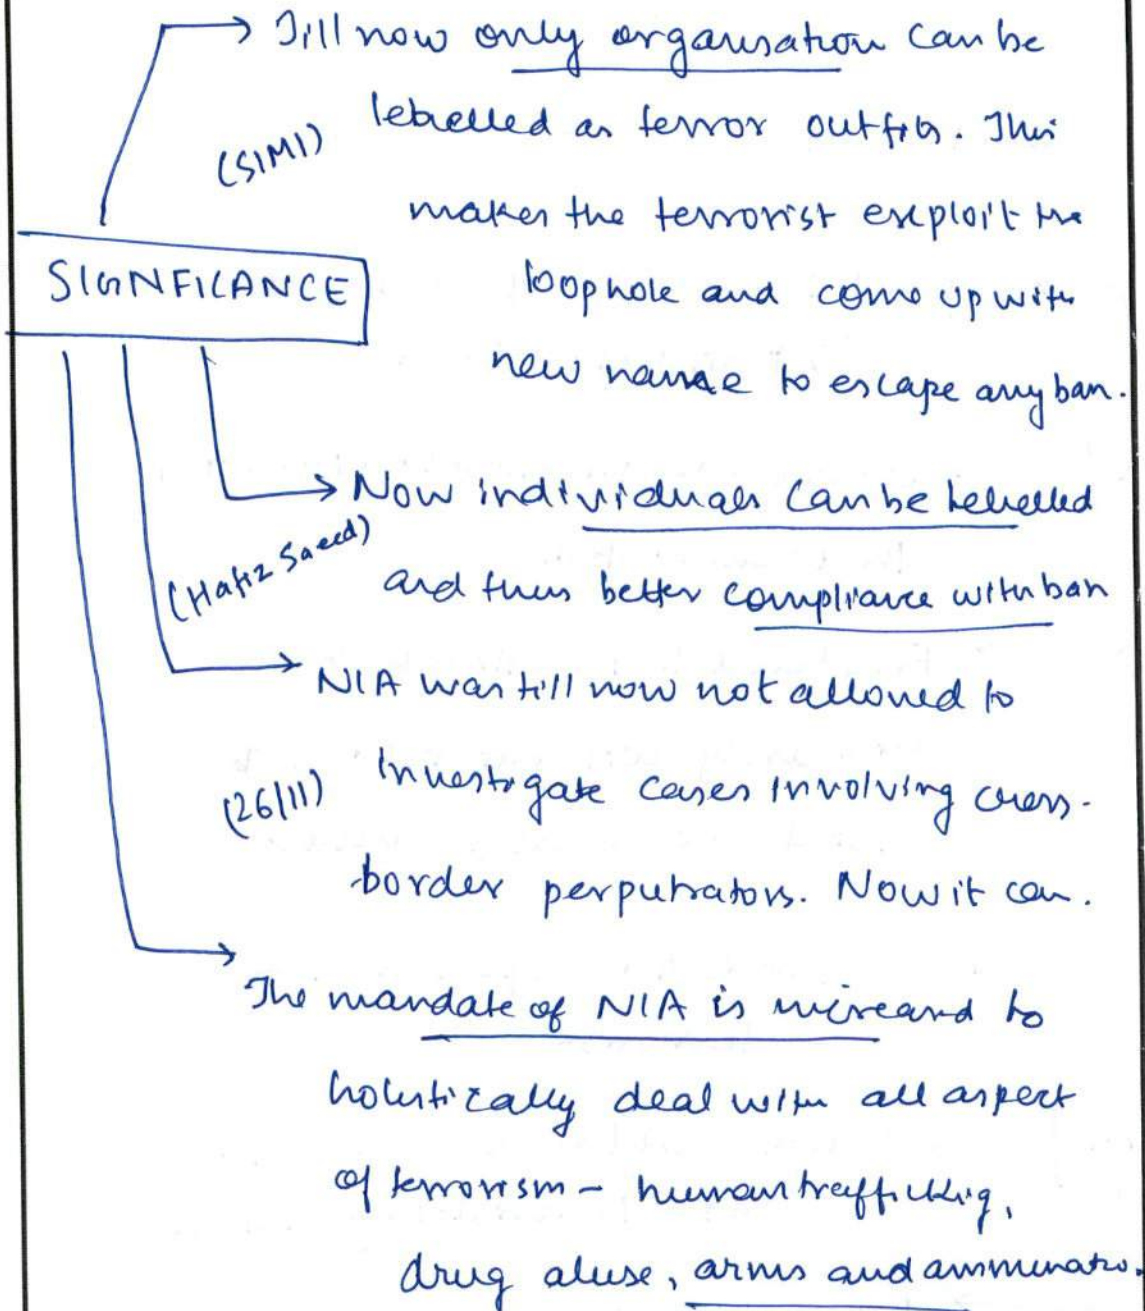 Till now only organisation can be
(SIMI)
lebelled as terror outfits. This
makes the terrorist exploit the
loophole and come up with
new name to escape any ban.
SIGNFICANCE
Now individuals can be lebelled
(Hafiz Saeed)
and thus better compliance with ban
NIA was till now not allowed to
(26/11)
investigate cases involving cross-
border perputrators. Now it can.
The mandate of NIA is increased to
holistically deal with all aspect
of terrorism - human trafficking,
drug abuse, arms and ammunation.